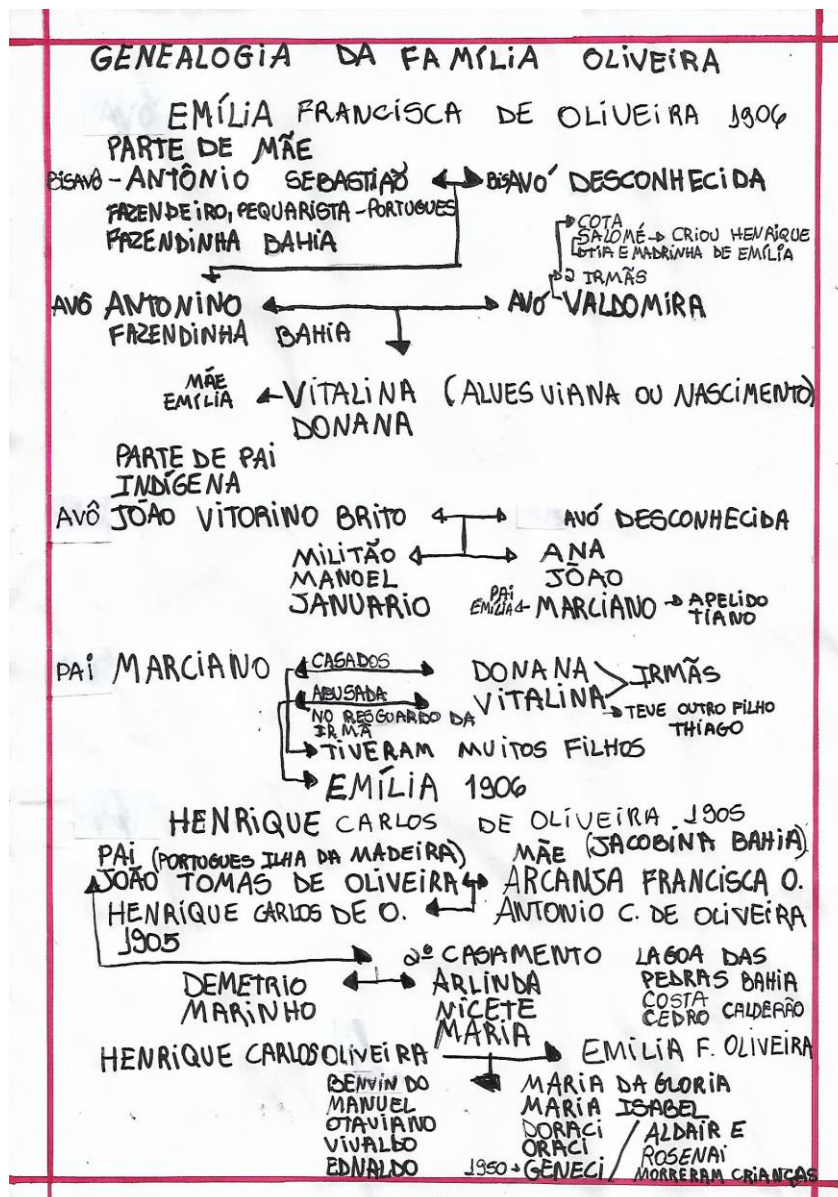 GENEALOGIA DA FAMÍLIA OLIVEIRA
EMÍLIA FRANCISCA DE OLIVEIRA 1906
PARTE DE MÃE
BISAVÔ - ANTÔNIO SEBASTIÃO BISAVÓ DESCONHECIDA
FAZENDEIRO, PEQUARISTA - PORTUGUES
FAZENDINHA BAHIA
COTA
SALOMÉ → CRIOU HENRIQUE
TIA E MADRINHA DE EMÍLIA
2 IRMÃS
AVÔ ANTONINO AVÓ VALDOMIRA
FAZENDINHA BAHIA
MÃE
EMÍLIA ← VITALINA (ALVES VIANA OU NASCIMENTO)
DONANA
PARTE DE PAI
INDÍGENA
AVÔ JOÃO VITORINO BRITO AVÓ DESCONHECIDA
MILITÃO ANA
MANOEL JOÃO
JANUARIO PAI EMÍLIA ← MARCIANO → APELIDO TIANO
PAI MARCIANO CASADOS DONANA IRMÃS
ABUSADA VITALINA → TEVE OUTRO FILHO
NO RESGUARDO DA THIAGO
IRMÃ
TIVERAM MUITOS FILHOS
EMÍLIA 1906
HENRIQUE CARLOS DE OLIVEIRA 1905
PAI (PORTUGUES ILHA DA MADEIRA) MÃE (JACOBINA BAHIA)
JOÃO TOMAS DE OLIVEIRA ARCANJA FRANCISCA O.
HENRIQUE CARLOS DE O. ANTONIO C. DE OLIVEIRA
1905
2º CASAMENTO LAGOA DAS
DEMETRIO ARLINDA PEDRAS BAHIA
MARINHO NICETE COSTA
MARIA CEDRO CALDERÃO
HENRIQUE CARLOS OLIVEIRA EMILIA F. OLIVEIRA
BENVINDO MARIA DA GLORIA
MANUEL MARIA ISABEL
OTAVIANO DORACI / ALDAIR E
VIVALDO ORACI ROSENAI
EDNALDO 1950 → GENECI MORRERAM CRIANÇAS